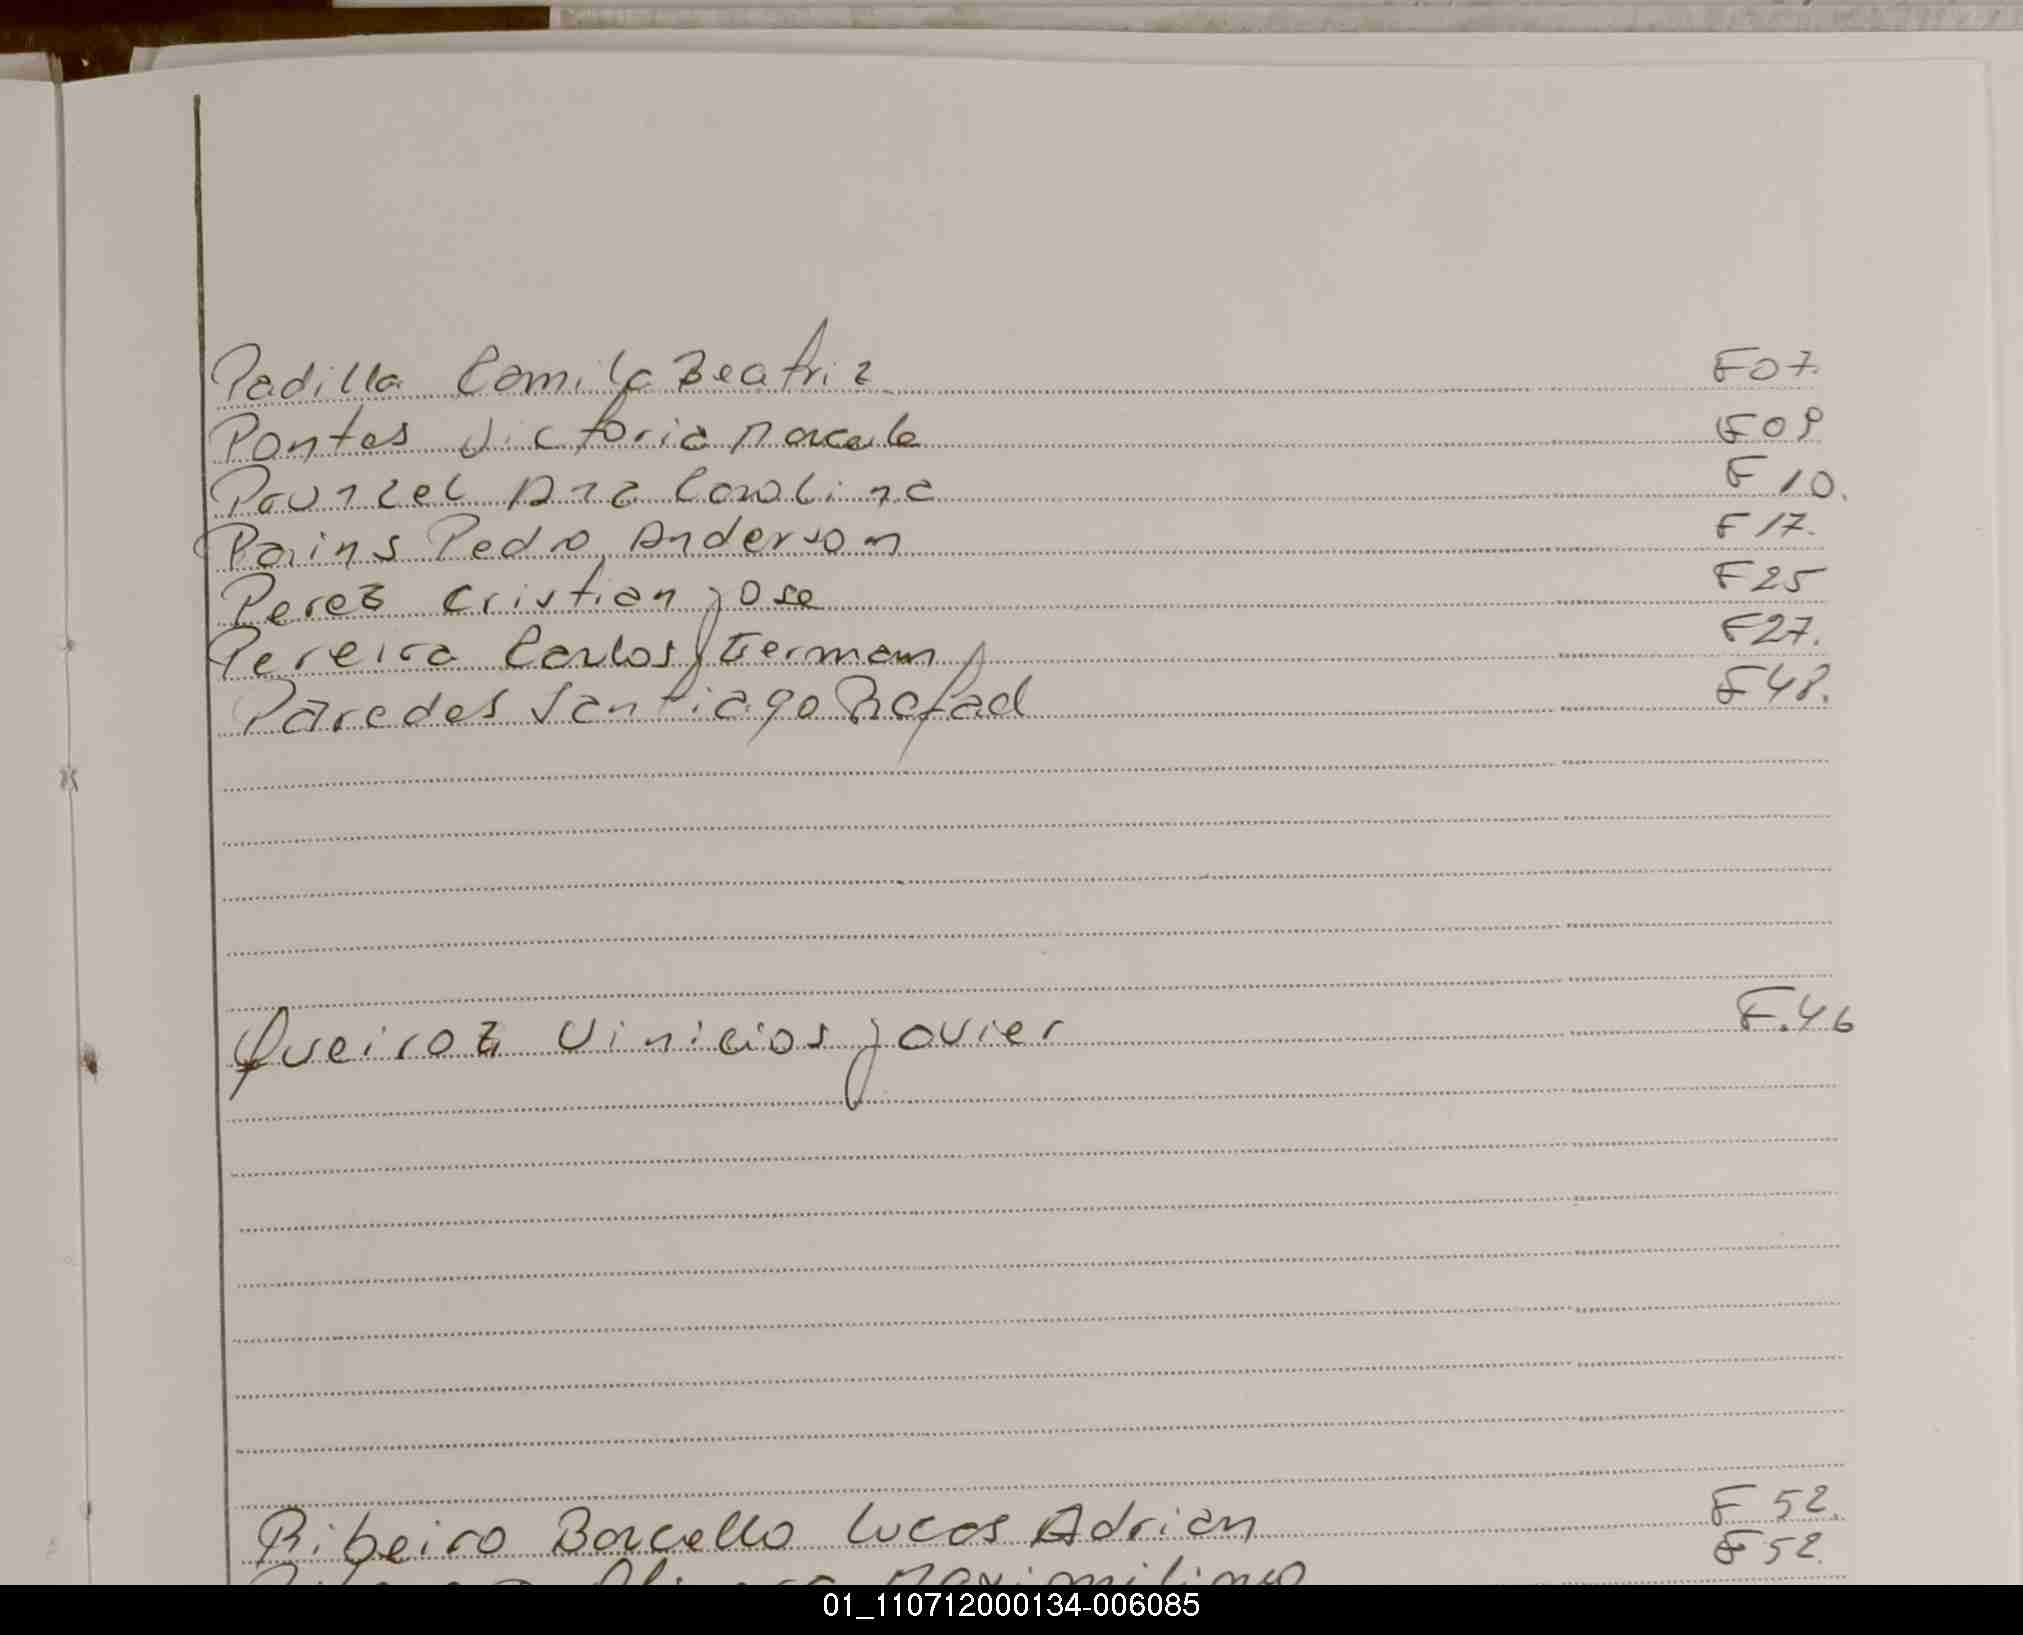 Padilla Camila Beatriz F07.
Pontes Victoria Marcela F09
Paunzel Ana Carolina F 10.
Parins Pedro Anderson F 17.
Perez Cristian Jose F25
Pereira Carlos German F27.
Paredes Santiago Rafael F48.
Queiroz Vinicios Javier F.46
Ribeiro Barcello Lucas Adrian F 52.
F 52.
01_110712000134-006085